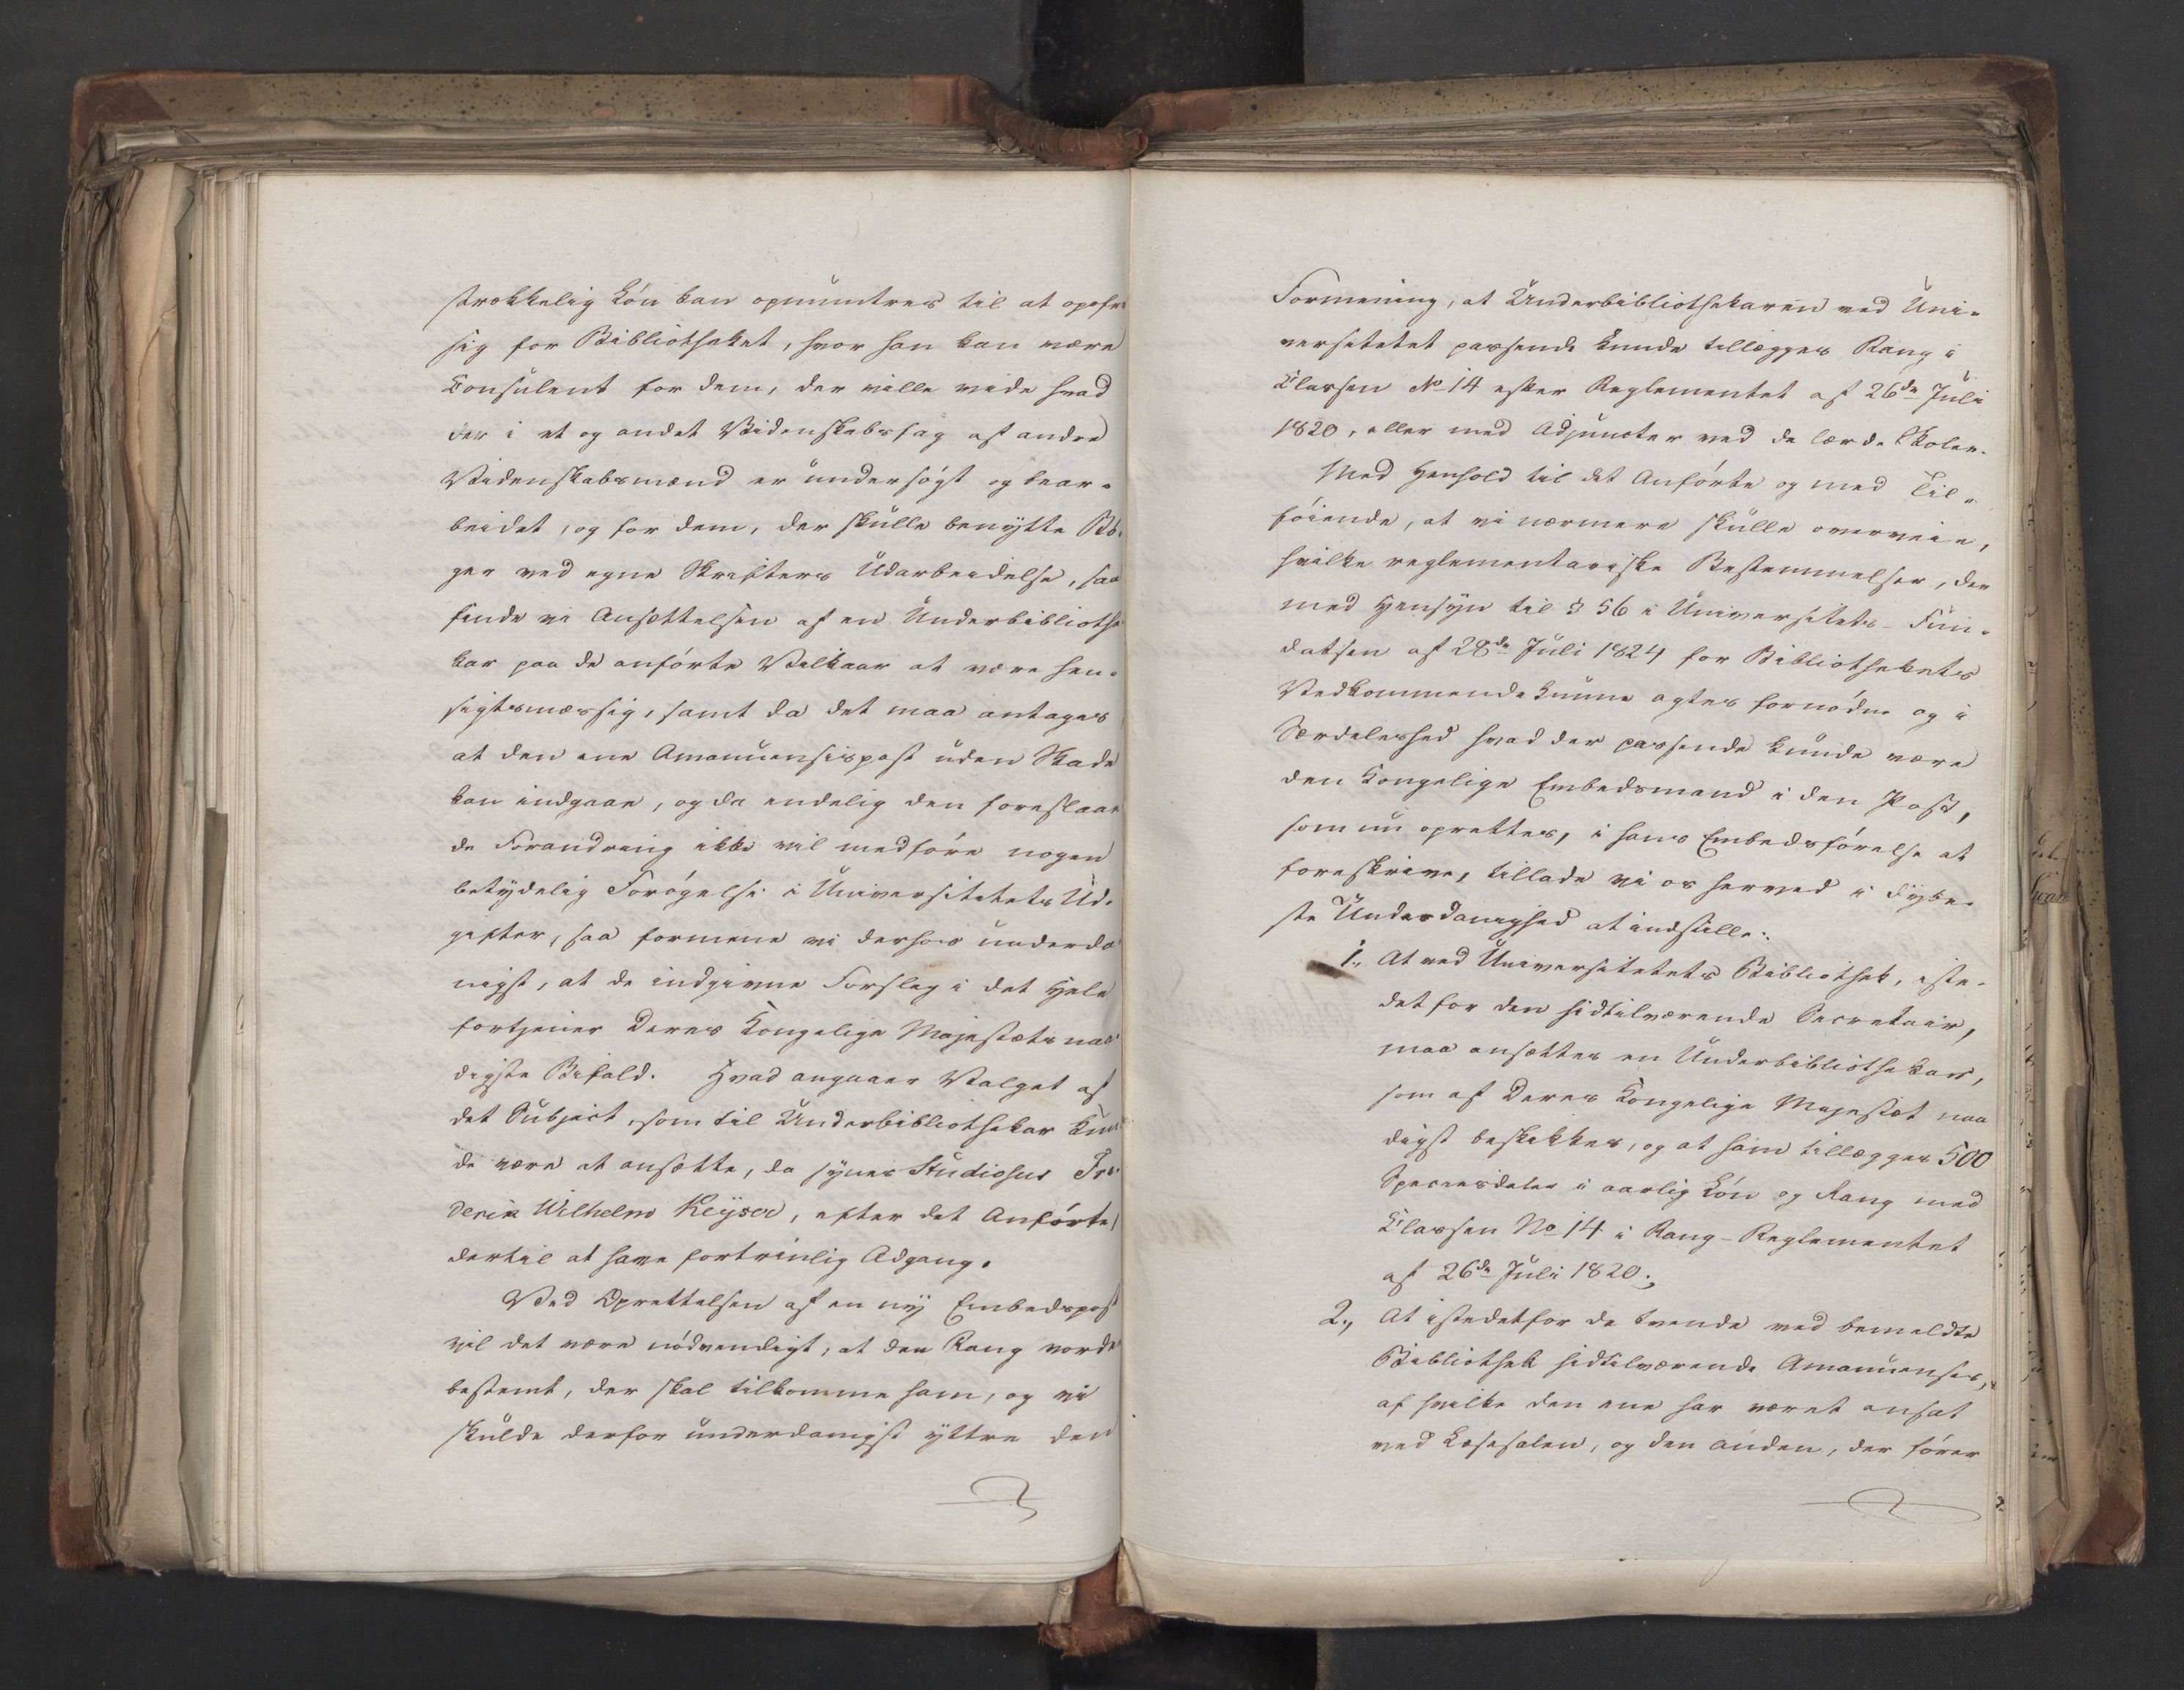 strækkelig Lön kan opmuntres til at opofre
sig for Bibliotheket, hvor han kan være
Consulent for dem, der ville vide hvad
der i et og andet Videnskabsfag af andre
Videnskabsmænd er undersögt og bear-
beidet, og for dem, der skulle benytte Bö-
ger ved egne Skrifters Udarbeidelse, saa
finde vi Ansættelsen af en Underbibliothe
kar paa de anförte Vilkaar at være hen-
sigtsmæssig, samt da det maa antages
at den ene Amanuensispost uden Skade
kan indgaae, og da endelig den foreslaae
de Forandring ikke vil medföre nogen
betydelig Forögelse i Universitetets Ud-
gifter, saa formene vi derhos underda
nigst, at de indgivne Forslag i det Hele
fortjener Deres Kongelige Majestæts naa
digste Bifald. Hvad angaaer Valget af
det Subject, som til Underbibliothekar kun
de være at ansætte, da synes Studiosus Fre
derik Wilhelm Keyser, efter det Anförte,
dertil at have fortrinlig Adgang.
Ved Oprettelsen af en ny Embedspost
vil det være nödvendigt, at den Rang vorder
bestemt, der skal tilkomme ham, og vi
skulde derfor underdanigst yttre den
Formening, at Underbibliothekaren ved Uni-
versitetet passende kunde tillægges Rang i
Classen No 14 efter Reglementet af 26de Juli
1820, eller med Adjuncter ved de lærde Skoler.
Med Henhold til det Anförte og med Til-
föiende, at vi nærmere skulle overveie,
hvilke reglementariske Bestemmelser, der
med Hensyn til § 56 i Universitets-Fun-
datsen af 28de Juli 1824 for Bibliothekets
Vedkommende kunne agtes fornödne og i
Særdeleshed hvad der passende kunde være
den Kongelige Embedsmand i den Post,
som nu oprettes, i hans Embedsförelse at
foreskrive, tillade vi os herved i dybe-
ste Underdanighed at indstille:
1., At ved Universitetets Bibliothek, iste-
det for den hidtilværende Secretair,
maa ansættes en Underbibliothekar,
som af Deres Kongelige Majestæt naa
digst beskikkes, og at ham tillægges 500
Speciesdaler i aarlig Lön og Rang med
Classen No 14 i Rang-Reglementet
af 26de Juli 1820.;
2., At istedetfor de tvende ved bemeldte
Bibliothek hidtilværende Amanuenser,
af hvilke den ene har været ansat
ved Læsesalen, og den anden, der förer